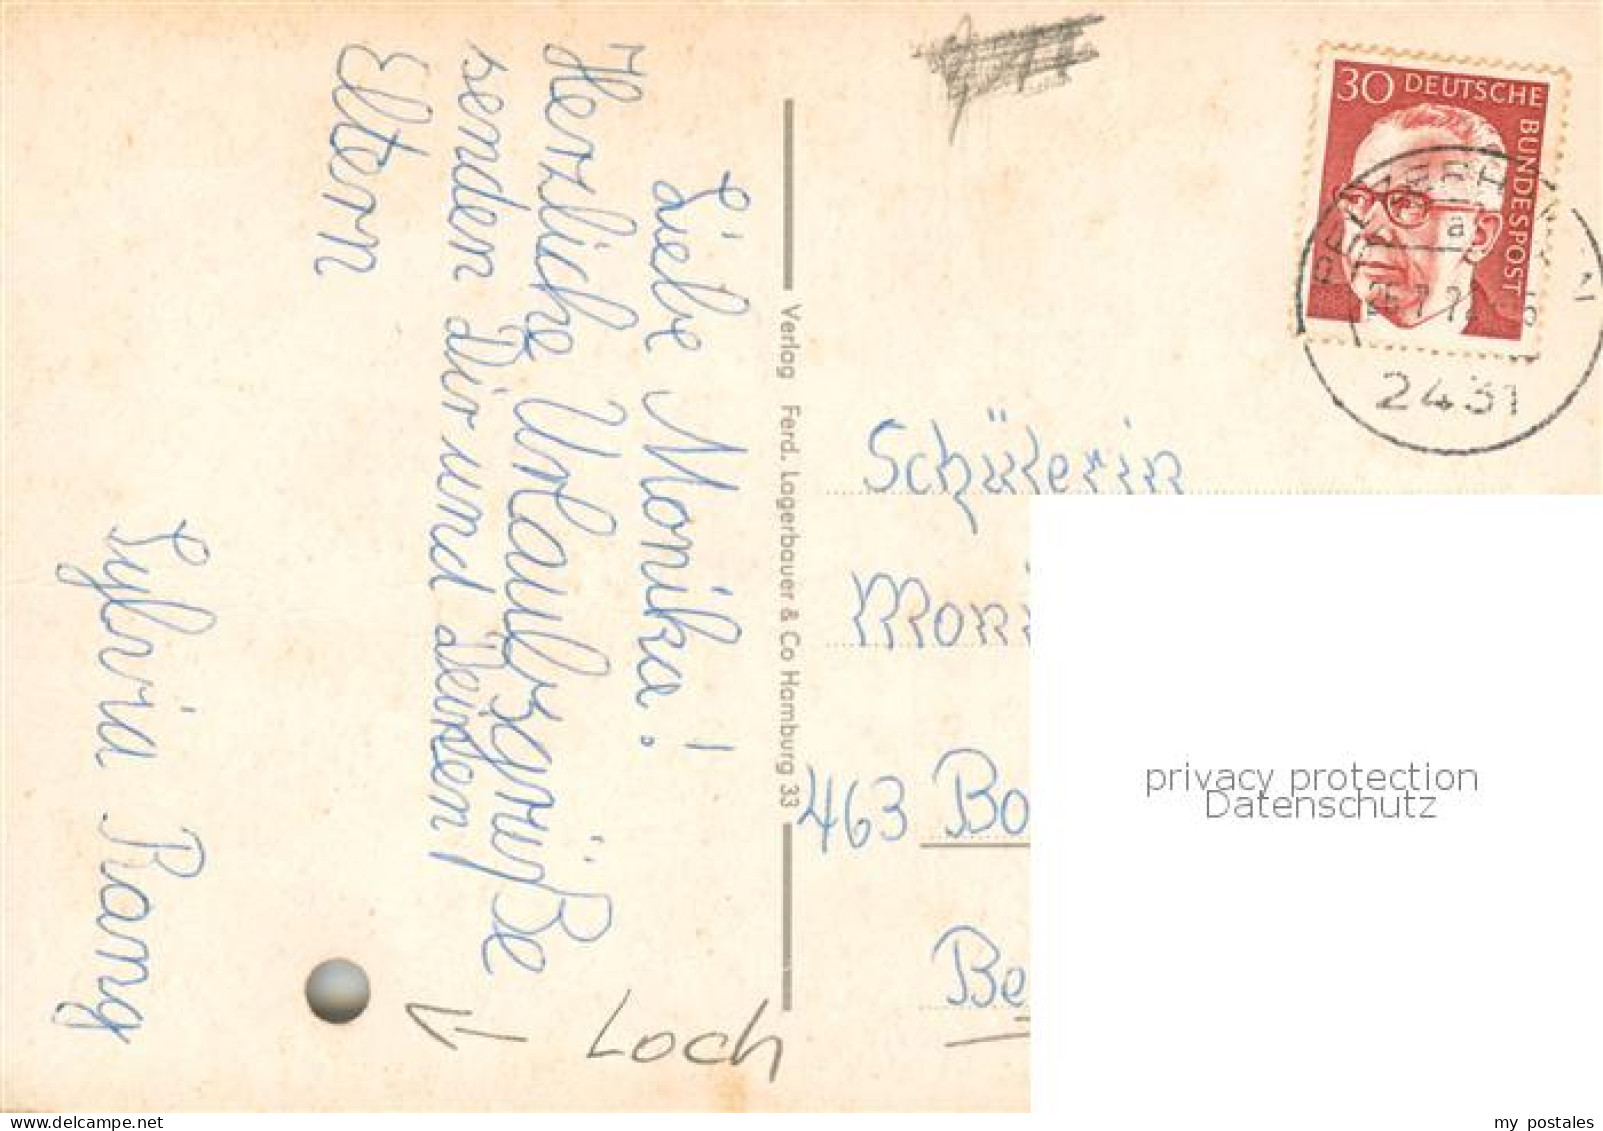 Liebe Monika!
Herzliche Urlaubsgrüße
senden Dir und Deinen
Eltern
Sylvia Rang
Loch
Verlag Ferd. Lagerbauer & Co Hamburg 33
30 DEUTSCHE
BUNDESPOST
a
2431
Schülerin
463 Bo
Be
privacy protection
Datenschutz
my postales